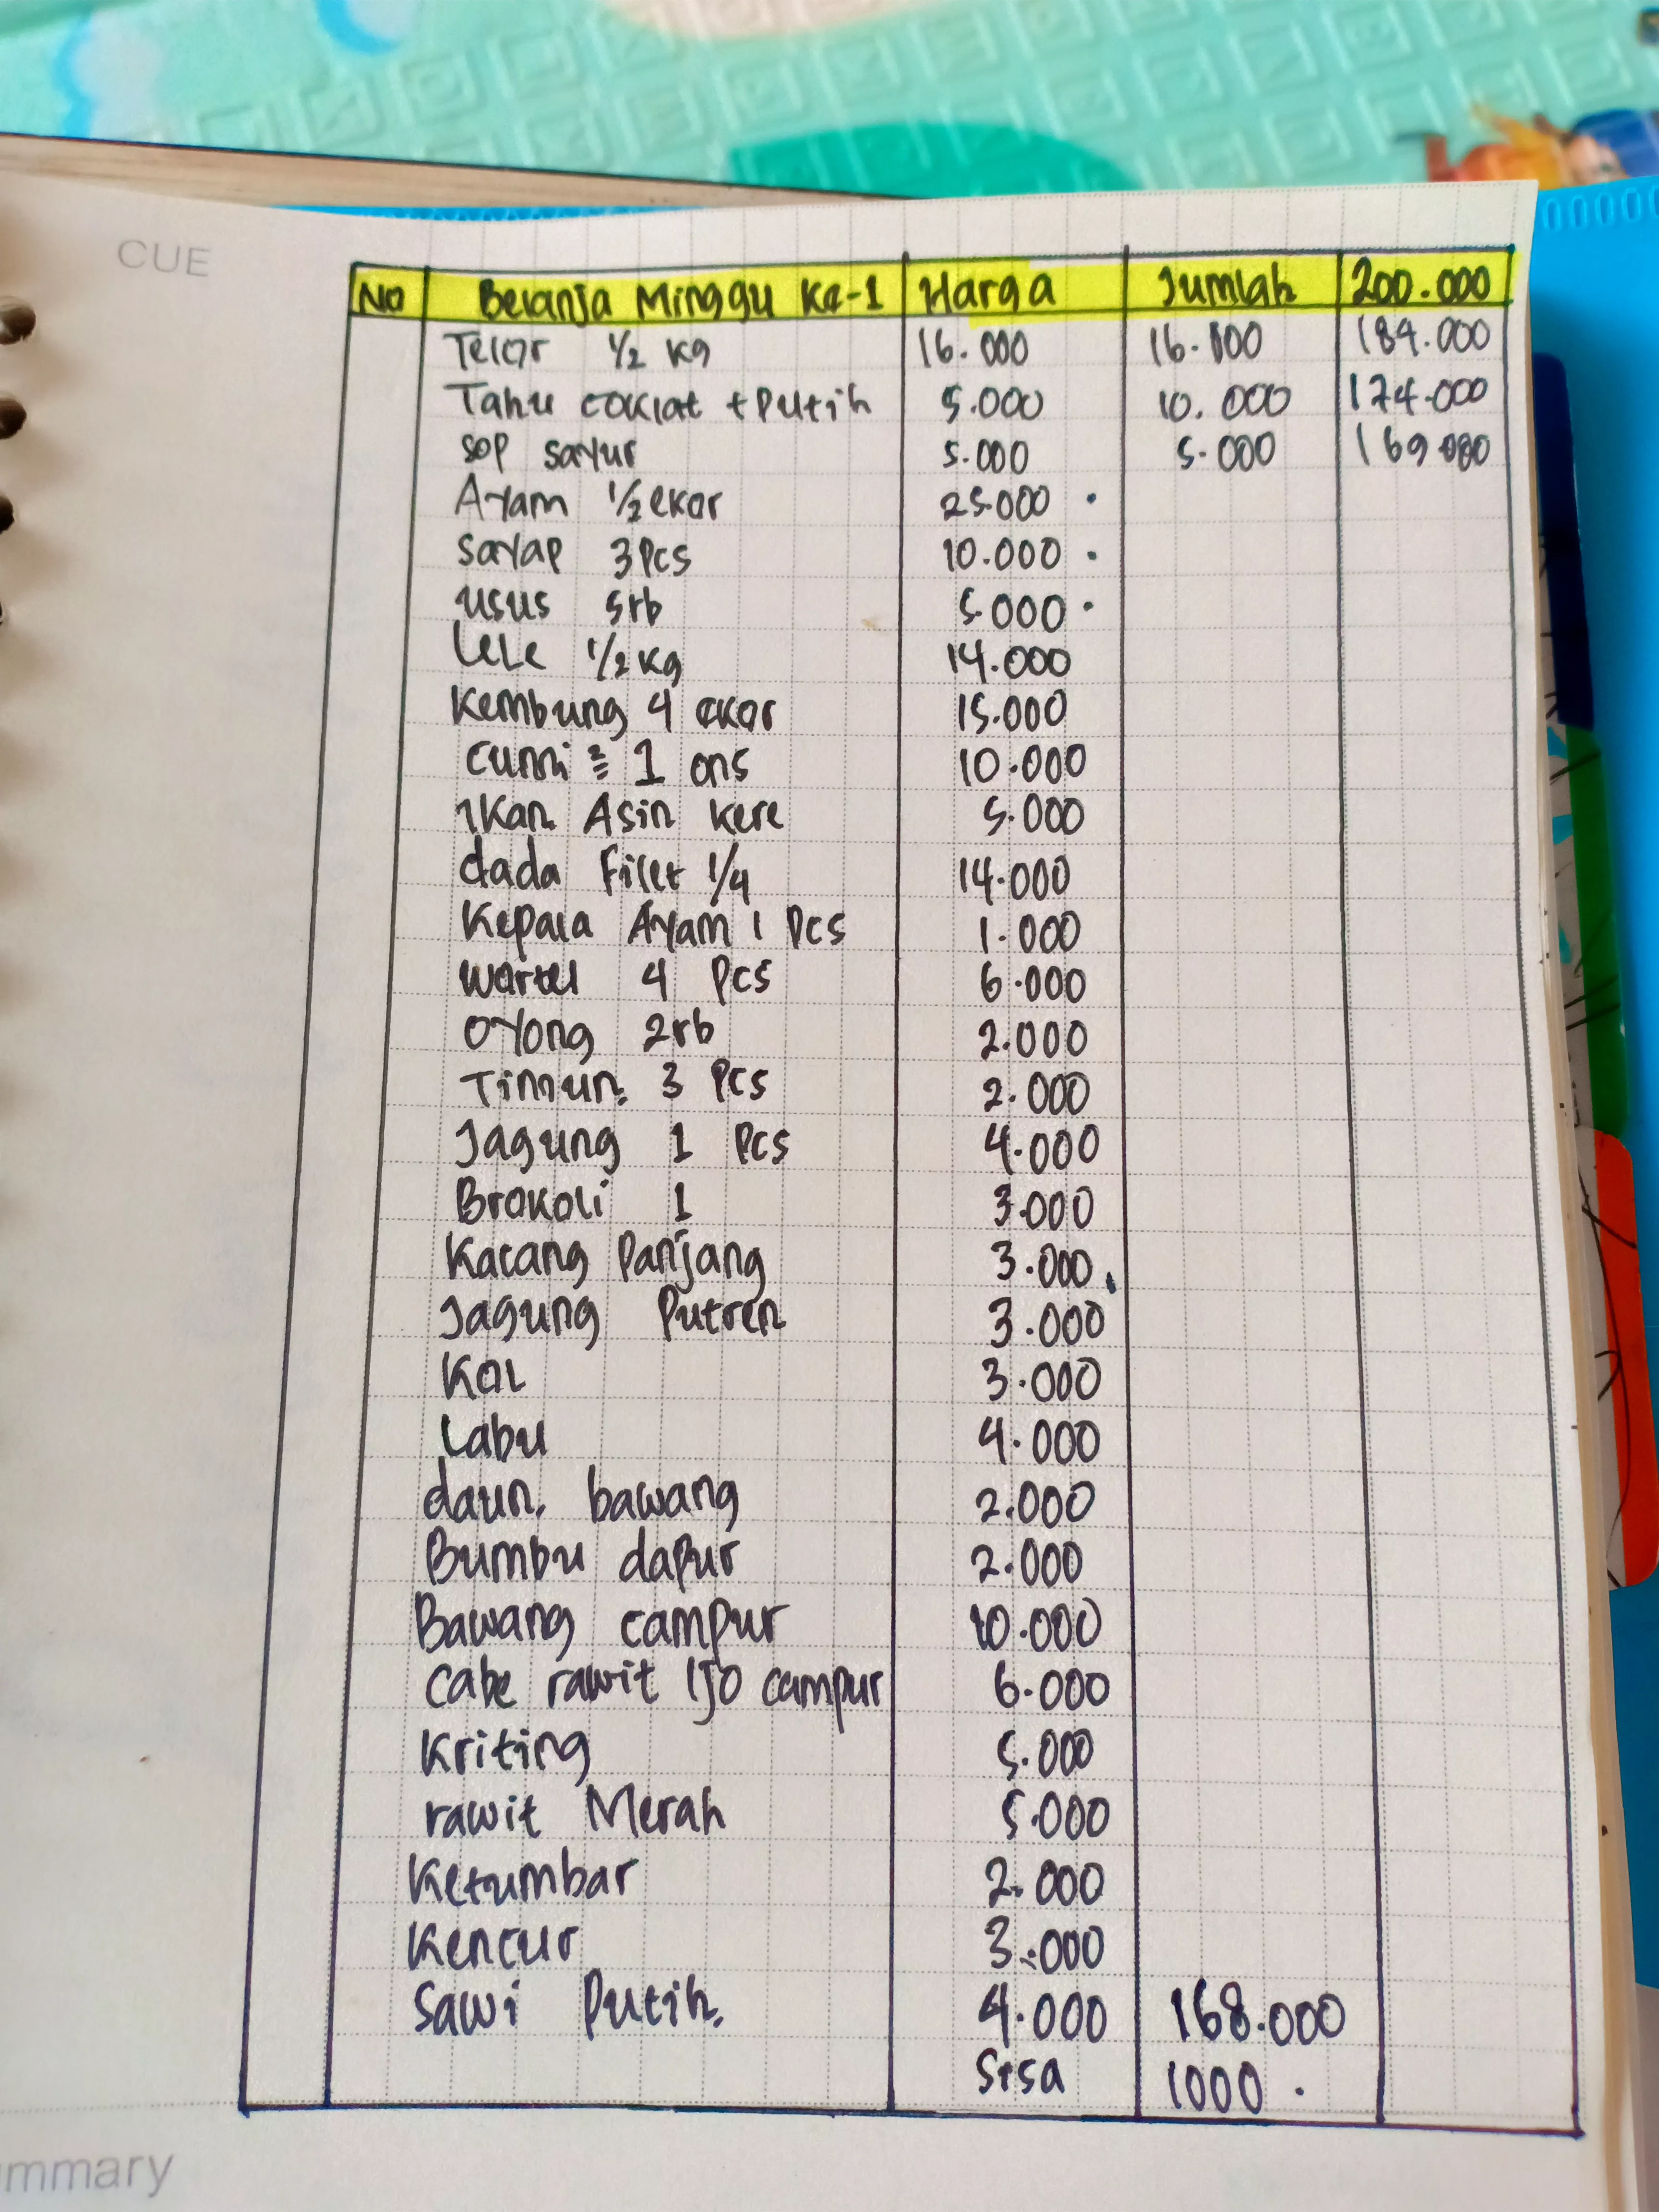 CUE
No Belanja Minggu Ke-1 Harga Jumlah 200.000
Telor 1/2 kg 16.000 16.000 184.000
Tahu coklat + Putih 5.000 10.000 174.000
sop sayur 5.000 5.000 169.000
Ayam 1/2 ekor 25.000
sayap 3 Pcs 10.000
usus 5rb 5.000
Lele 1/2 kg 14.000
Kembung 4 ekor 15.000
cumi 1 ons 10.000
Ikan Asin kere 5.000
dada Filet 1/4 14.000
Kepala Ayam 1 Pcs 1.000
Wortel 4 Pcs 6.000
Oyong 2rb 2.000
Timun. 3 Pcs 2.000
Jagung 1 Pcs 4.000
Brokoli 1 3.000
Kacang Panjang 3.000
Jagung Putren 3.000
Kol 3.000
Labu 4.000
daun. bawang 2.000
Bumbu dapur 2.000
Bawang campur 10.000
Cabe rawit IJO campur 6.000
Kriting 5.000
rawit Merah 5.000
Ketumbar 2.000
Kencur 3.000
Sawi Putih. 4.000 168.000
Sisa 1000.
mmary